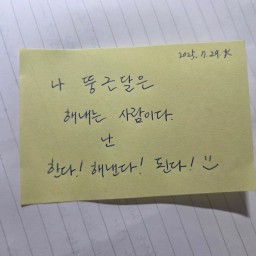 2025. 7. 29. 火
나 뚱근달은
해내는 사람이다.
난
한다! 해낸다! 된다!